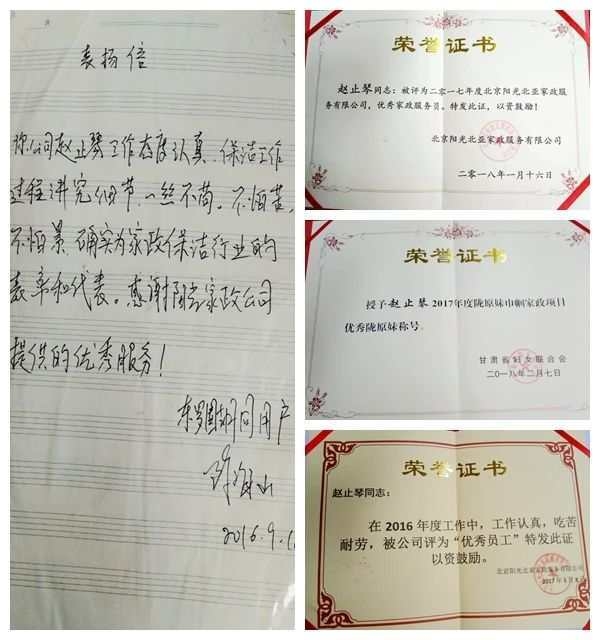 表扬信
你公司赵止琴工作态度认真、保洁工作
过程讲究细节、一丝不苟。不怕苦、
不怕累、确实为家政保洁行业的
表率和代表。感谢阳光家政公司
提供的优秀服务！
东罗圈胡同用户
2016.9.1
荣誉证书
赵止琴同志：被评为二零一七年度北京阳光北亚家政服
务有限公司，优秀家政服务员。特发此证，以资鼓励！
北京阳光北亚家政服务有限公司
二零一八年一月十六日
荣誉证书
授予赵止琴2017年度陇原妹巾帼家政项目
优秀陇原妹称号。
甘肃省妇女联合会
二〇一八年二月七日
荣誉证书
赵止琴同志：
在2016年度工作中，工作认真，吃苦
耐劳，被公司评为“优秀员工”特发此证
以资鼓励。
北京阳光北亚家政服务有限公司